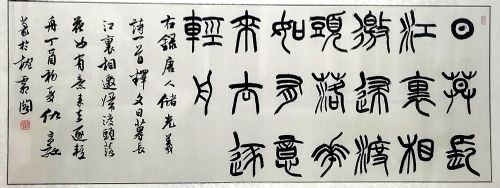 日莫長
江裏相
邀歸渡
頭落花
如有意
來去逐
輕舟
右錄唐人儲光羲
詩一首釋文日莫長
江裏相邀歸渡頭落
花如有意來去逐輕
舟丁酉初夏仇高
篆於